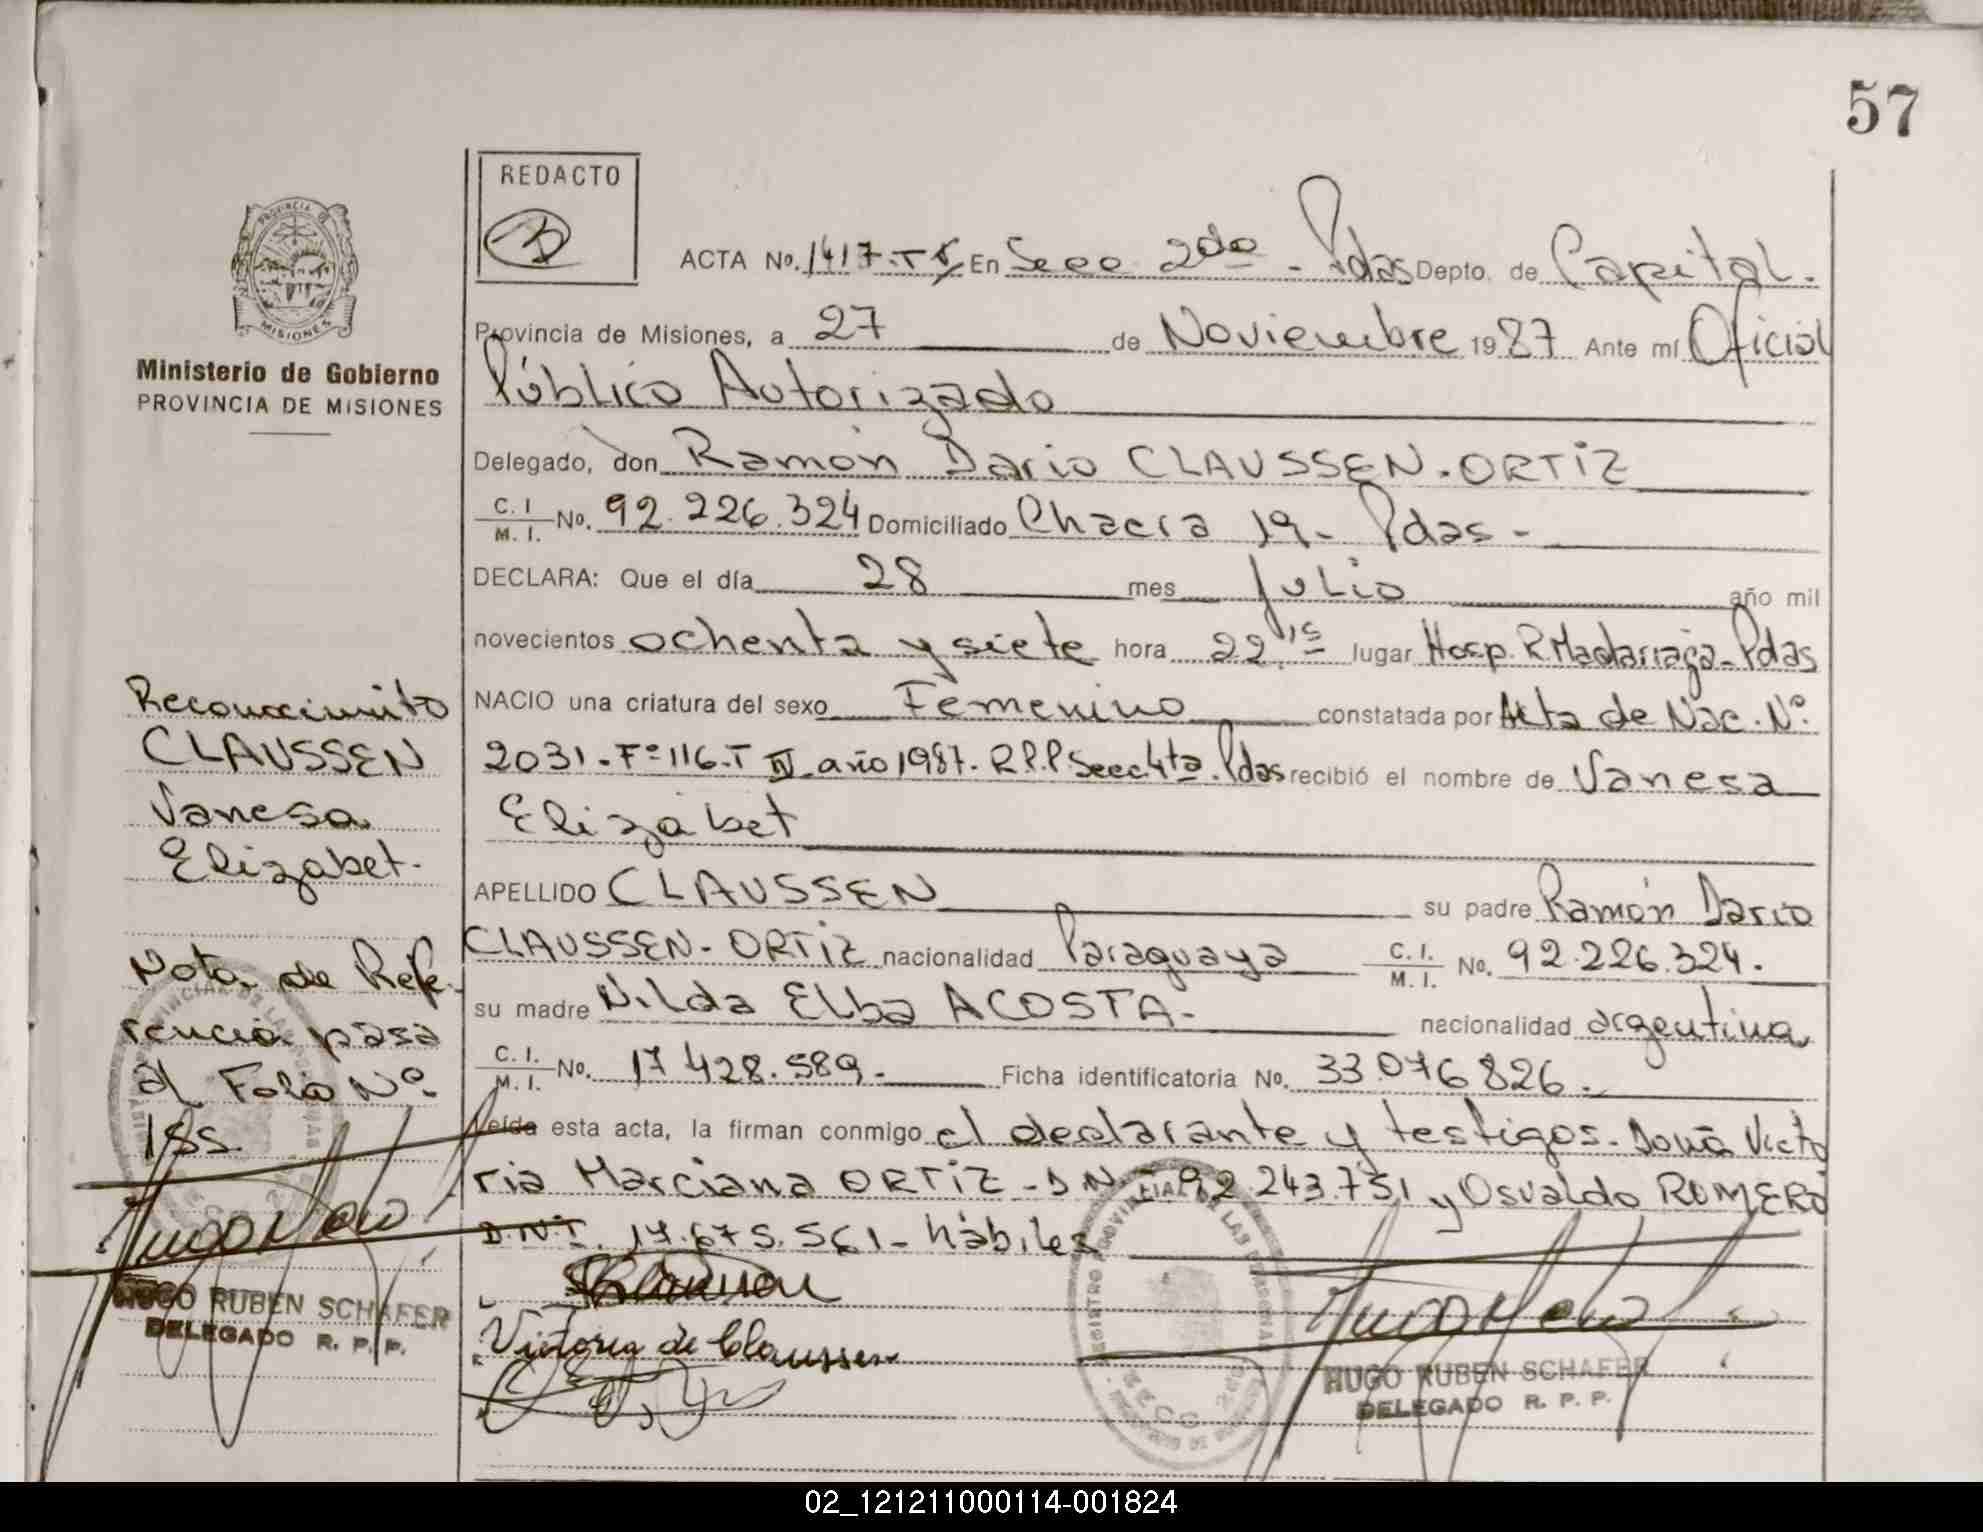 57
REDACTO
PROVINCIA DE
MISIONES
Ministerio de Gobierno
PROVINCIA DE MISIONES
ACTA No. 1417.T En Secc 2do - Pdas Depto. de Capital.
Provincia de Misiones, a 27 de Noviembre 1987 Ante mí Oficial
Público Autorizado
Delegado, don Ramón Dario CLAUSSEN-ORTIZ
C. I. M. I. No. 92.226.324 Domiciliado Chacra 19- Pdas-
DECLARA: Que el día 28 mes Julio año mil
novecientos ochenta y siete hora 22,15 lugar Hosp. R. Madariaga-Pdas
NACIO una criatura del sexo Femenino constatada por Acta de Nac. Nº.
2031-Fº116-T IV año 1987. R.P.P. Secc 4ta. Pdas recibió el nombre de Vanesa
Elizabet
APELLIDO CLAUSSEN su padre Ramón Dario
CLAUSSEN-ORTIZ nacionalidad Paraguaya C. I. M. I. No. 92.226.324.
su madre Nilda Elba ACOSTA- nacionalidad argentina
C. I. M. I. No. 17.428.589.- Ficha identificatoria No. 33.076826.
Leída esta acta, la firman conmigo el declarante y testigos. Doña Victo
ria Marciana ORTIZ - DNI- 92.243.751 y Osvaldo ROMERO
D.N.I. 17.675.561- hábiles
Victoria de Claussen
HUGO RUBEN SCHAFER
DELEGADO R. P. P.
REGISTRO PROVINCIAL DE LAS PERSONAS
SECC 2da
Reconocimiento
CLAUSSEN
Vanesa
Elizabet.
Nota de Refe-
rencia pasa
al Folio Nº.
155.
HUGO RUBEN SCHAFER
DELEGADO R. P. P.
02_121211000114-001824